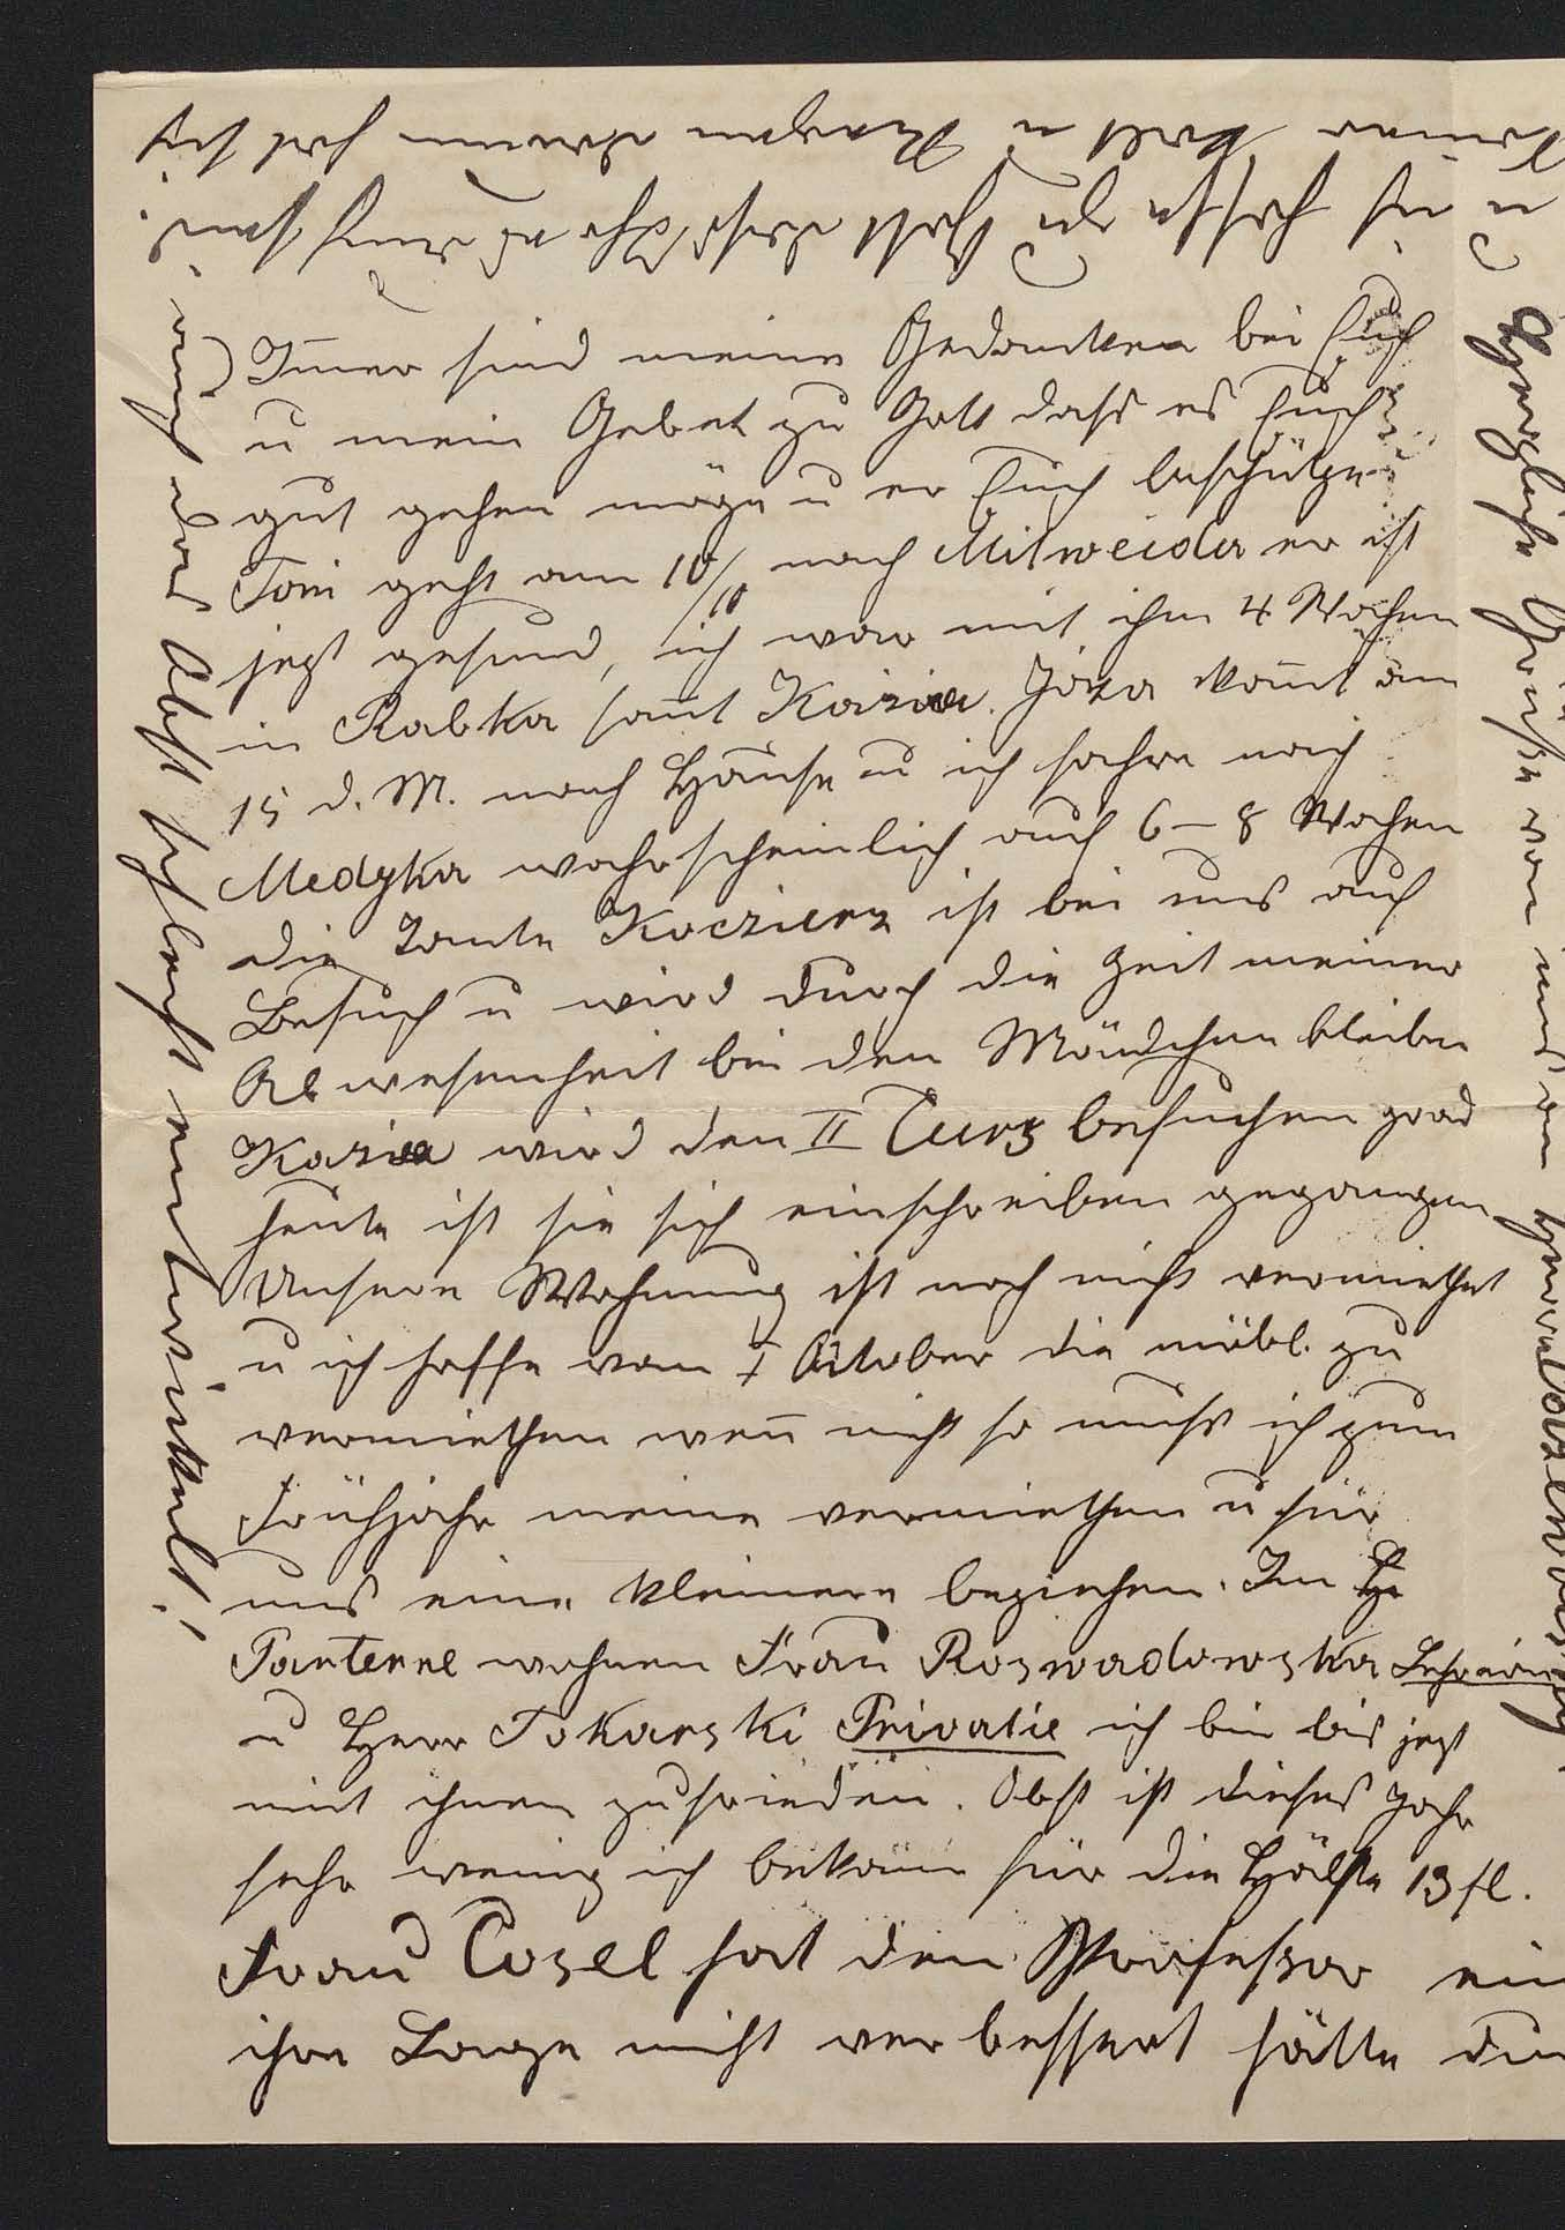 Immer sind meine Gedanken bei Euch
u mein Gebet zu Gott dass es Euch
gut gehen möge u er Euch beschütze
Toni geht am 10/10 nach Mitweida er ist
jezt gesund, ich war mit ihm 4 Wochen
in Rabka samt Kazia. Józia komt am
15 d. M. nach Hause u ich fahre nach
Medyka wahrscheinlich auf 6–8 Wochen
die Tante ist bei uns auf
Besuch u wird durch die Zeit meiner
Abwesenheit bei den Mädchen bleiben
Kazia wird den II Curs besuchen grad
heute ist sie sich einschreiben gegangen
Unsere Wohnung ist noch nicht vermiethet
u ich hoffe vom 1 October die möbl. zu
vermiethen wen̄ nicht so muss ich zum
Frühjahr meine vermiethen u für
uns eine kleinere beziehen. Im
Parterre wohnen Frau Rozwadowska Lehrerin
u Herr Tokarski Privatie ich bin bis jezt
mit ihnen zufrieden. Obst ist dieses Jahr
sehr wenig ich bekam für die Hälfte 13 fl.
Frau Cosel hat den Professor
ihre Lage nicht verbessert hätte
auch das Obst schlecht entwickelt!
immer kalt u Regen darum hat sich
Herzliche Grüsse von uns an